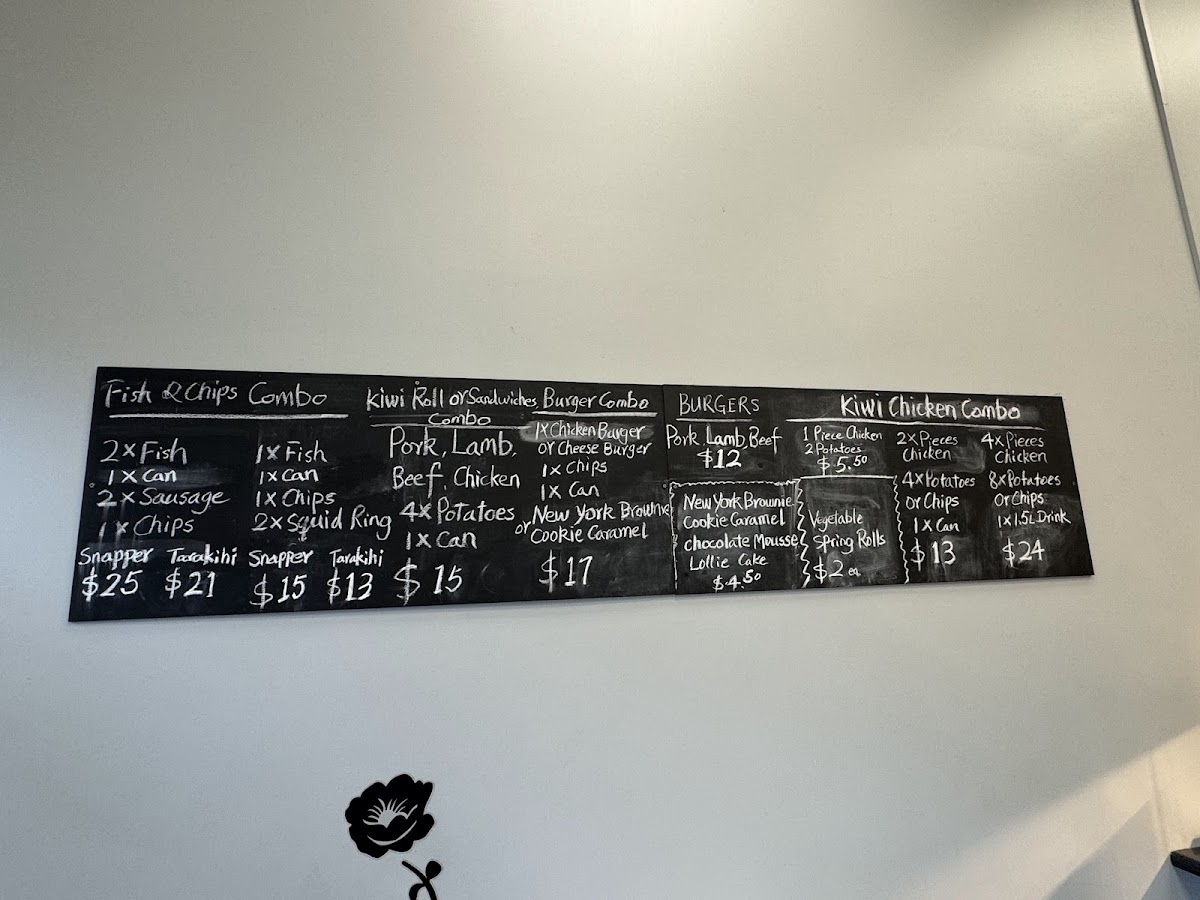 Fish & Chips Combo
2x Fish
1x Can
2x Sausage
1x Chips
Snapper Tarakihi
$25 $21
1x Fish
1x Can
1x Chips
2x Squid Ring
Snapper Tarakihi
$15 $13
Kiwi Roll or Sandwiches
Combo
Pork, Lamb,
Beef, Chicken
4x Potatoes
1x Can
$15
Burger Combo
1x Chicken Burger
or Cheese Burger
1x Chips
1x Can
New York Brownie
or Cookie Caramel
$17
BURGERS
Pork, Lamb, Beef
$12
New York Brownie
Cookie Caramel
chocolate Mousse
Lollie Cake
$4.50
Kiwi Chicken Combo
1 Piece Chicken
2 Potatoes
$5.50
Vegetable
Spring Rolls
$2 ea
2x Pieces
Chicken
4x Potatoes
or Chips
1x Can
$13
4x Pieces
Chicken
8x Potatoes
or Chips
1x 1.5L Drink
$24